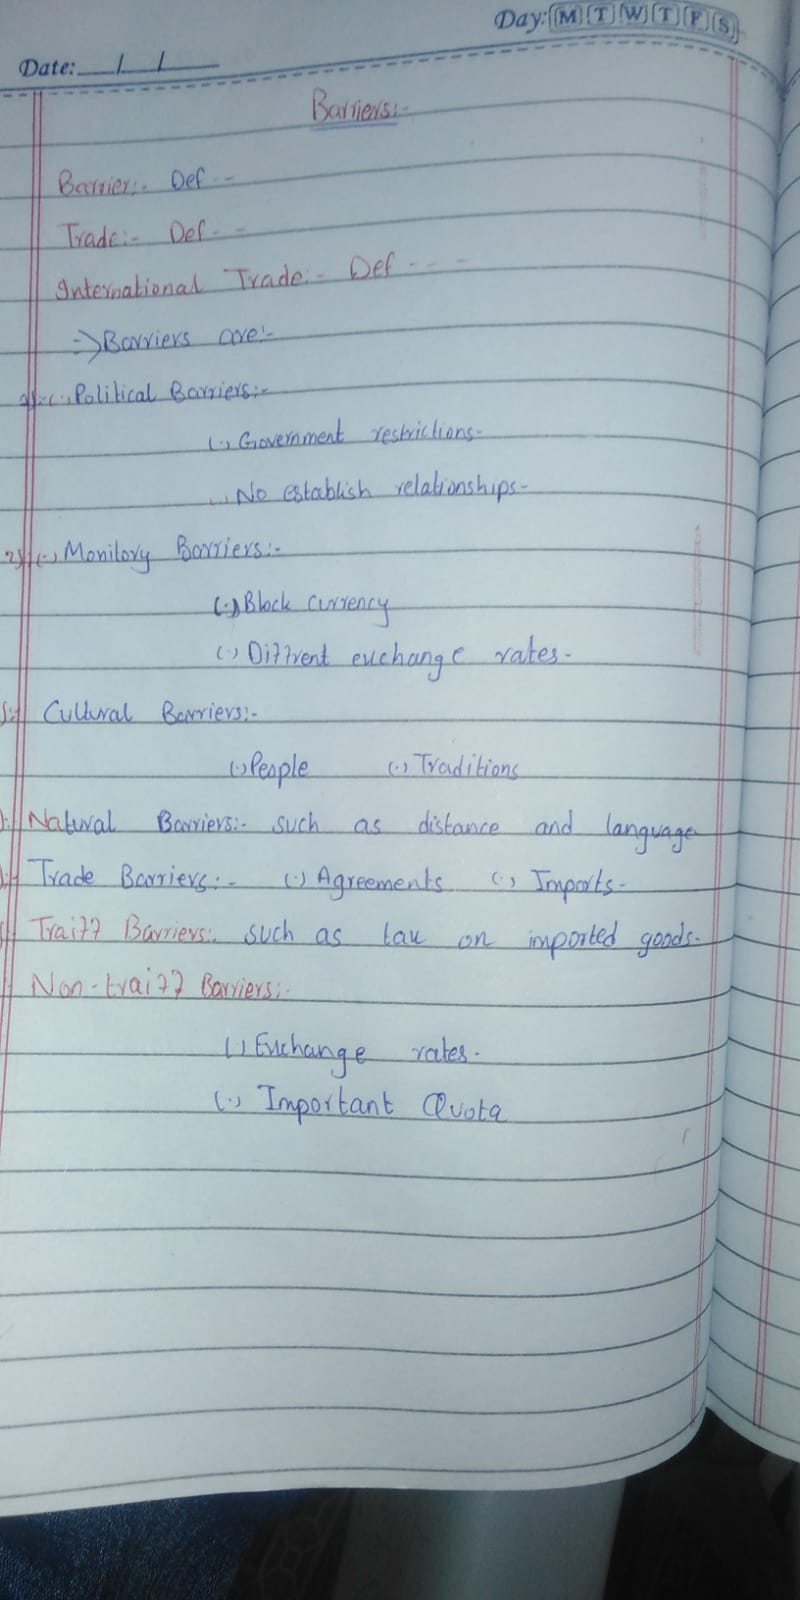 Day: M T W T F S
Date: __/__/__
Barriers:-
Barrier:- Def --
Trade:- Def - -
International Trade:- Def - - -
=> Barriers are:-
(.) Political Barriers:-
(.) Government restrictions-
No establish relationships-
2) (.) Monitory Barriers:-
(.) Block currency
(.) Diffrent euchange rates-
Cultural Barriers:-
(.) People (.) Traditions
Natural Barriers:- such as distance and language
Trade Barriers:- (.) Agreements (.) Imports-
Traiff Barriers:- such as tau on imported goods-
Non-traiff Barriers:-
(.) Euchange rates-
(.) Important Quota